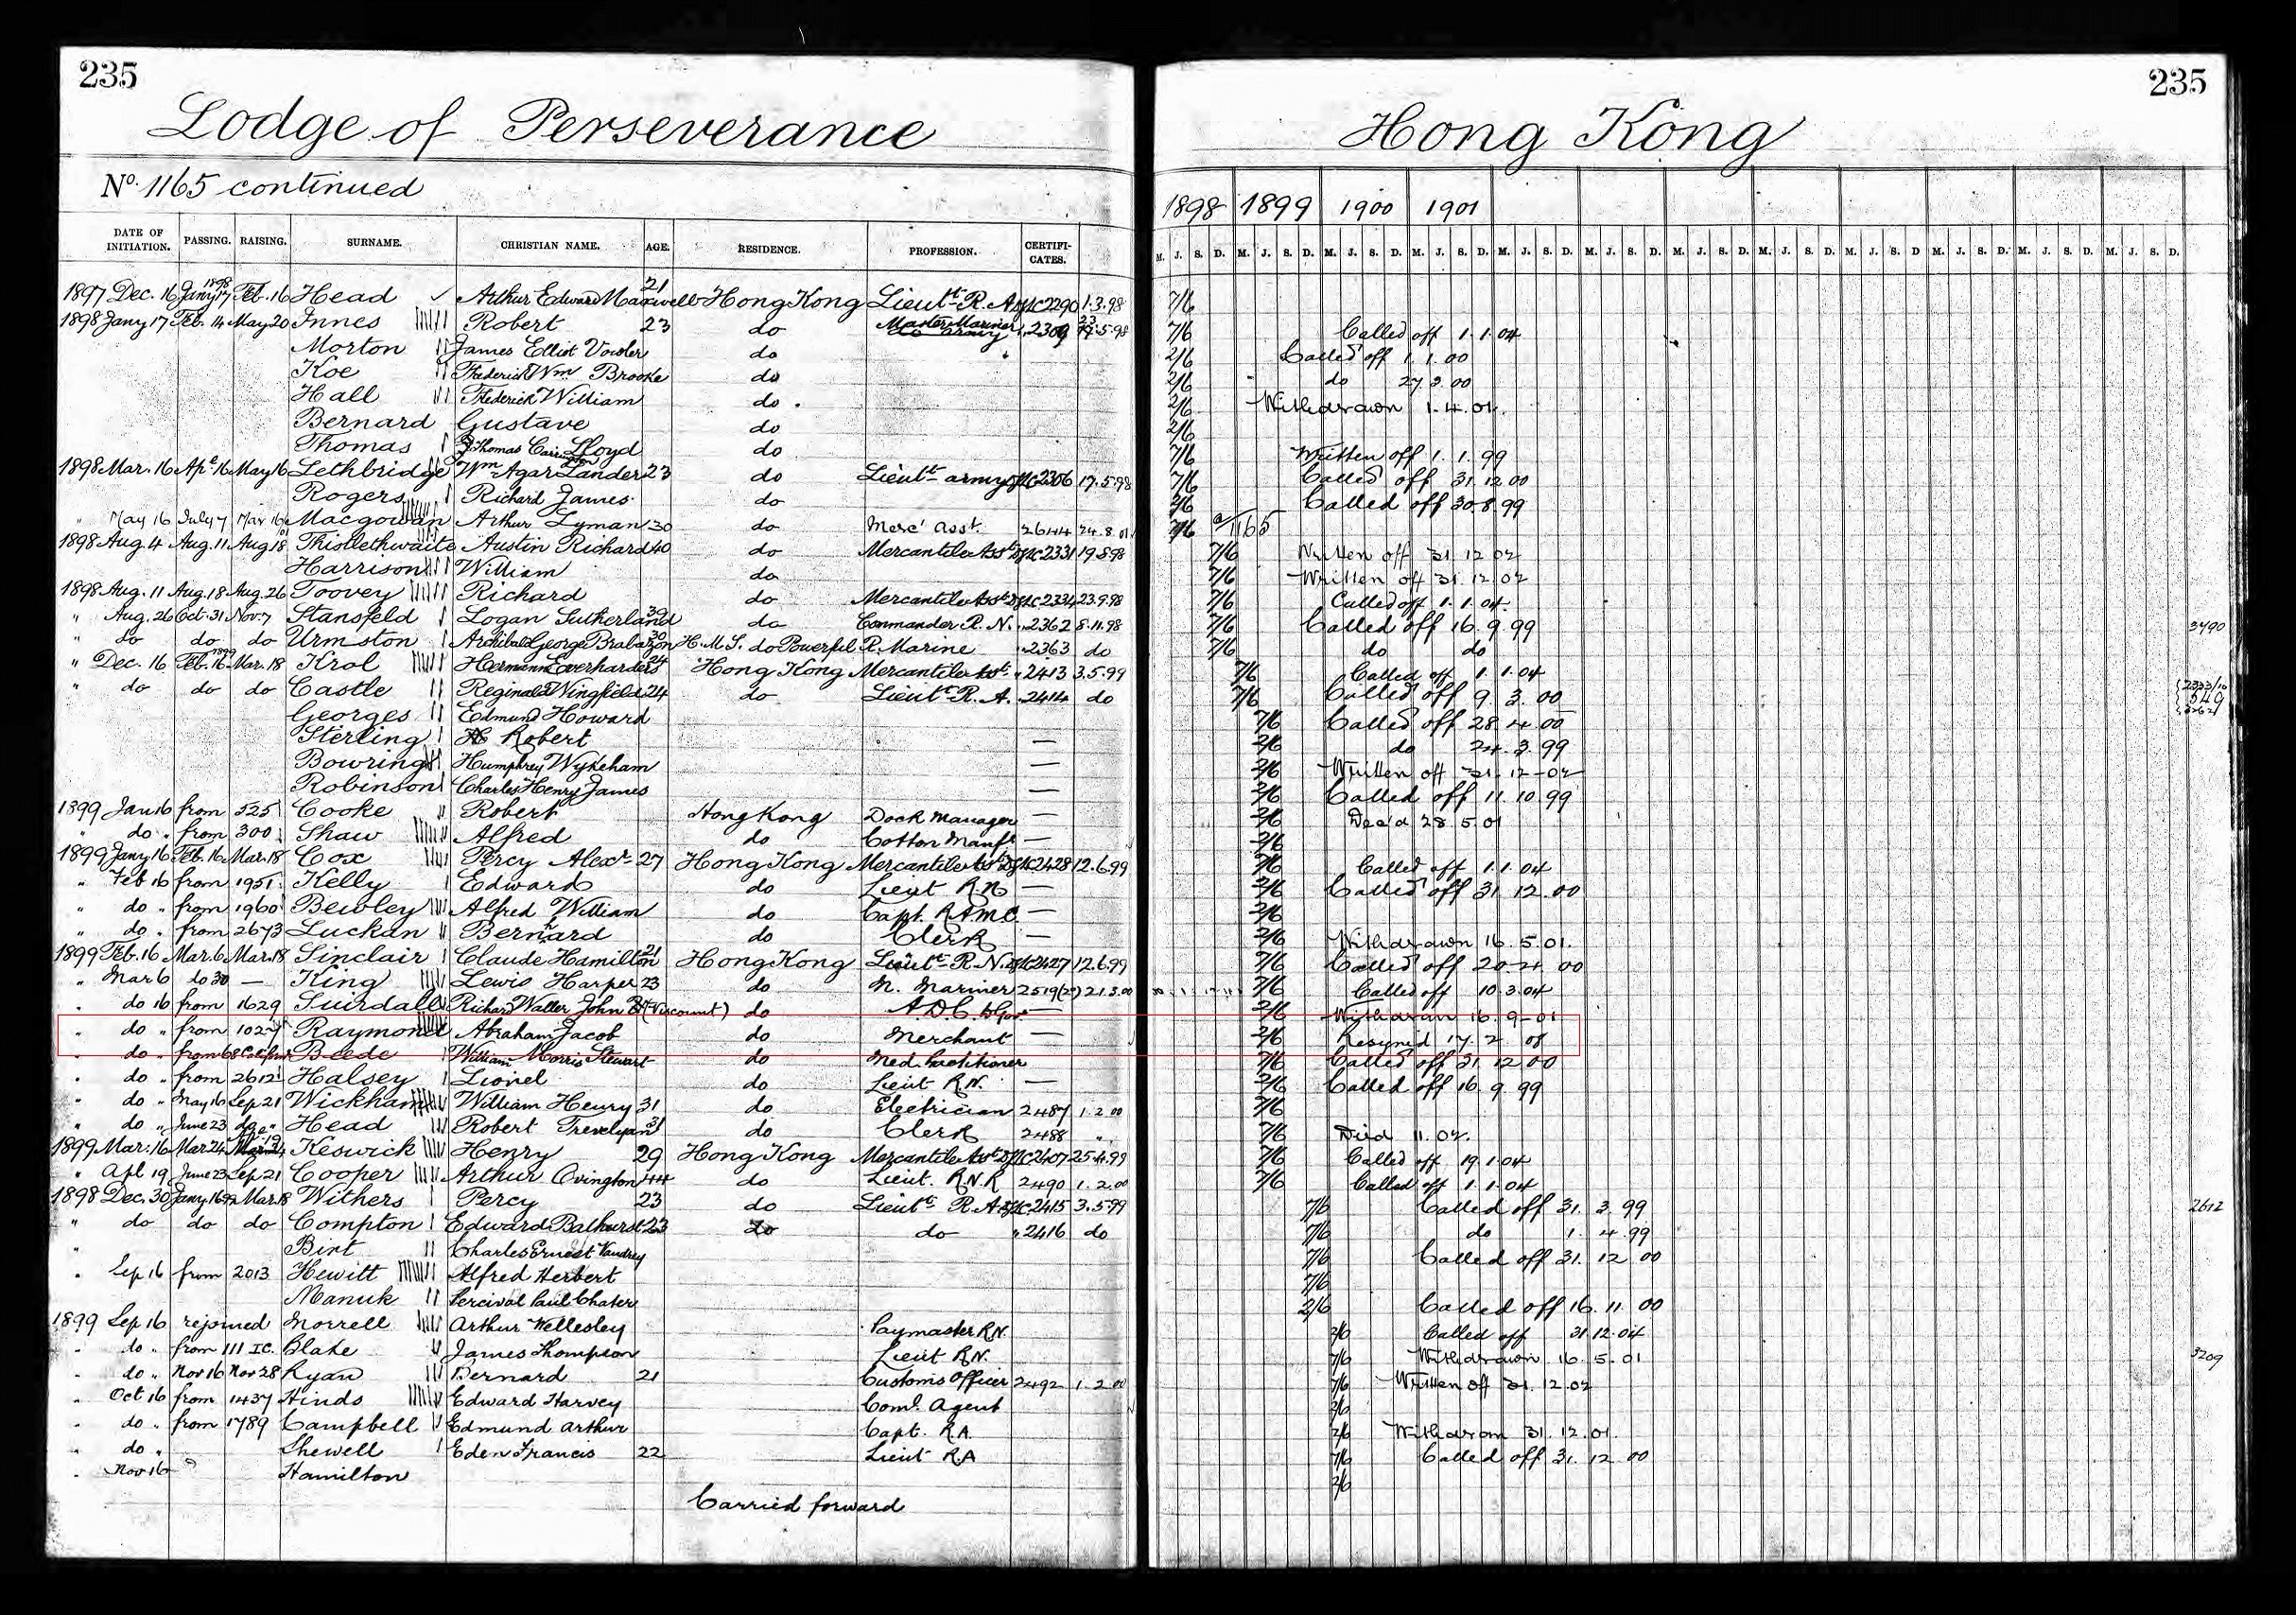 235
235
Lodge of Perseverance
Hong Kong
No. 1165 continued
1898 1899 1900 1901
DATE OF INITIATION. PASSING. RAISING. SURNAME. CHRISTIAN NAME. AGE. RESIDENCE. PROFESSION. CERTIFI-CATES.
M. J. S. D. M. J. S. D. M. J. S. D. M. J. S. D. M. J. S. D. M. J. S. D. M. J. S. D. M. J. S. D. M. J. S. D. M. J. S. D. M. J. S. D. M. J. S. D.
1897 Dec. 16 1898 Jany 17 Feb. 16 Head Arthur Edward Maxwell 21 Hong Kong Lieutt R.A. 2290 1.3.98 7/6
1898 Jany 17 Feb. 14 May 20 Innes Robert 23 do Master Mariner 2309 23.5.98 7/6 Called off 1.1.04
Morton James Elliot Vowler do 2/6 Called off 1.1.00
Koe Frederick Wm Brooke do 2/6 do 27.3.00
Hall Frederick William do 2/6 Withdrawn 1.4.01
Bernard Gustave do 2/6
Thomas Thomas Lloyd do 7/6 Written off 1.1.99
1898 Mar. 16 Apl 16 May 16 Lethbridge Wm Agar Lander 23 do Lieutt army 2306 17.5.98 7/6 Called off 31.12.00
Rogers Richard James do 2/6 Called off 30.8.99
" May 16 July 7 Mar 16 Macgowan Arthur Lyman 30 do Merct asst. 2644 24.8.01 7/6 1165
1898 Aug. 4 Aug. 11 Aug 18 Thistlethwaite Austin Richard 40 do Mercantile Asst 2331 19.8.98 7/6 Written off 31.12.02
Harrison William do 7/6 Written off 31.12.02
1898 Aug. 11 Aug. 18 Aug. 26 Toovey Richard do Mercantile Asst 2334 23.9.98 7/6 Called off 1.1.04
" Aug. 26 Oct. 31 Nov. 7 Stansfeld Logan Sutherland 39 do Commander R.N. 2362 8.11.98 7/6 Called off 16.9.99 3490
" do do do Urmston Archibald George Brabazon 30 H.M.S. do Powerful R. Marine 2363 do 7/6 do do
" Dec. 16 1899 Feb. 16 Mar. 18 Krol Hermann Everhardus 24 Hong Kong Mercantile Asst. 2413 3.5.99 7/6 Called off 1.1.04
" do do do Castle Reginald Wingfield 24 do Lieutt R.A. 2414 do 7/6 Called off 9.3.00
Georges Edmund Howard 7/6 Called off 28.4.00
Sterling Robert — 2/6 do 24.3.99
Bowring Humphrey Wykeham — 2/6 Written off 31.12.02
Robinson Charles Henry James — 2/6 Called off 11.10.99
1899 Jan 16 from 525 Cooke Robert Hong Kong Dock Manager — 2/6 Dec'd 28.5.01
" do " from 300 Shaw Alfred do Cotton Manfr — 2/6
1899 Jany 16 Feb. 16 Mar. 18 Cox Percy Alexr 27 Hong Kong Mercantile Asst 2428 12.6.99 7/6 Called off 1.1.04
" Feb 16 from 1951 Kelly Edward do Lieut R.N — 2/6 Called off 31.12.00
" do " from 1960 Bewley Alfred William do Capt. R.A.M.C. — 2/6
" do " from 2673 Luckan Bernard do Clerk — 2/6 Withdrawn 16.5.01.
1899 Feb. 16 Mar. 6 Mar. 18 Sinclair Claude Hamilton 21 Hong Kong Lieutt R.N. 2427 12.6.99 7/6 Called off 20.4.00
" Mar 6 do 30 — King Lewis Harper 23 do M. Mariner 2519 21.3.00 7/6 Called off 10.3.04
" do 16 from 1629 Suirdale Richard Walter John (Viscount) do A.D.C. — 2/6 Withdrawn 16.9.01
" do " from 1027 Raymond Abraham Jacob do Merchant 2/6 Resigned 17.2.08
" do " from Beede William Morris Stewart do Med. Practitioner 7/6 Called off 31.12.00
" do " from 2612 Halsey Lionel do Lieut R.N. — 2/6 Called off 16.9.99
" do " May 16 Sep 21 Wickham William Henry 31 do Electrician 2487 1.2.00 7/6
" do " June 23 do " Head Robert Trevelyan 31 do Clerk 2488 " 7/6 Died 11.02.
1899 Mar. 16 Mar 24 Keswick Henry 29 Hong Kong Mercantile Asst 2407 25.4.99 7/6 Called off 19.1.04
" Apl 19 June 23 Sep 21 Cooper Arthur Ovington 44 do Lieut. R.N.R 2490 1.2.00 7/6 Called off 1.1.04
1898 Dec. 30 Jany. 16 Mar. 18 Withers Percy 23 do Lieutt R.A. 2415 3.5.99 7/6 Called off 31.3.99 2612
" do do do Compton Edward Bathurst 23 do do 2416 do 7/6 do 1.4.99
" Birt Charles Ernest Vaudrey 7/6 Called off 31.12.00
" Sep 16 from 2013 Hewitt Alfred Herbert 7/6
Manuk Percival Paul Chater 2/6 Called off 16.11.00
1899 Sep 16 rejoined Morrell Arthur Wellesley Paymaster R.N. 2/6 Called off 31.12.04
" do " from 111 I.C. Blake James Thompson Lieut R.N. 7/6 Withdrawn 16.5.01 3209
" do " Nov 16 Nov 28 Ryan Bernard 21 Customs Officer 2492 1.2.00 7/6 Written off 31.12.02
" Oct 16 from 1437 Hinds Edward Harvey Coml. Agent 2/6
" do " from 1789 Campbell Edmund Arthur Capt. R.A. 2/6 Withdrawn 31.12.01.
" do " Shewell Eden Francis 22 Lieut R.A 7/6 Called off 31.12.00
" Nov 16 Hamilton 2/6
Carried forward